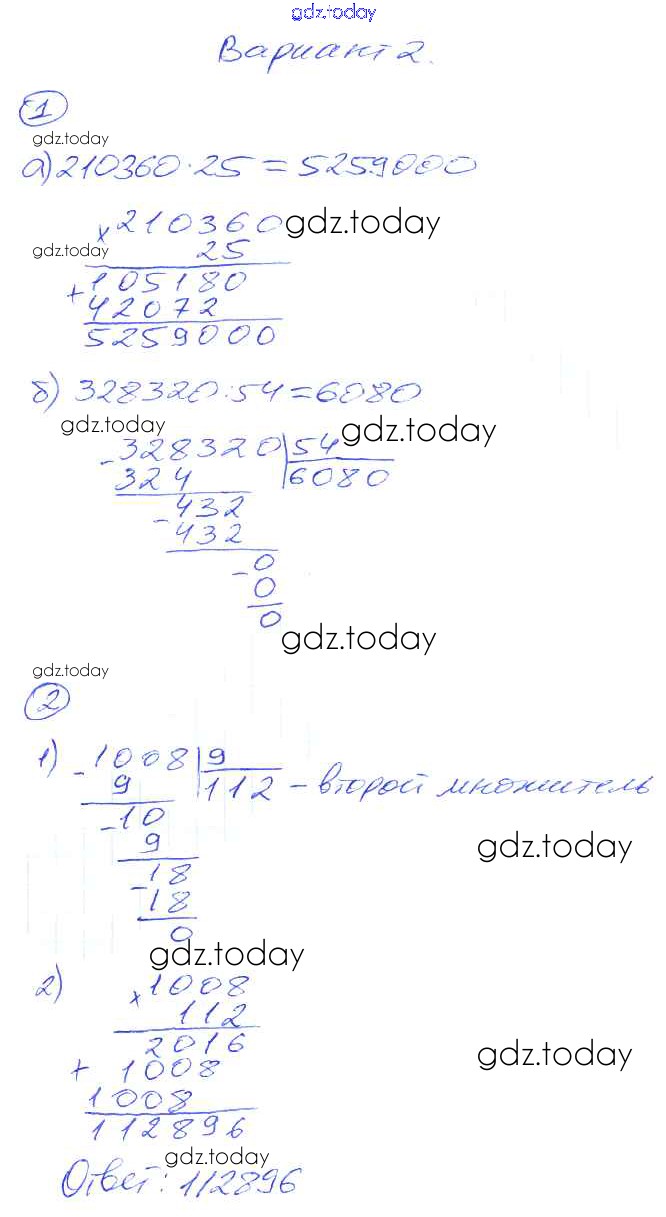 gdz.today
Вариант 2.
1
gdz.today
а) 210360 · 25 = 5259000
× 210360 gdz.today
gdz.today 25
+ 105180
42072
5259000
б) 328320 : 54 = 6080
gdz.today gdz.today
- 328320 | 54
324 6080
- 432
432
- 0
0
0
gdz.today
gdz.today
2
1) - 1008 | 9
9 112 - второй множитель
- 10
9 gdz.today
- 18
18
0
gdz.today
2) × 1008
112
2016 gdz.today
+ 1008
1008
112896
gdz.today
Ответ: 112896